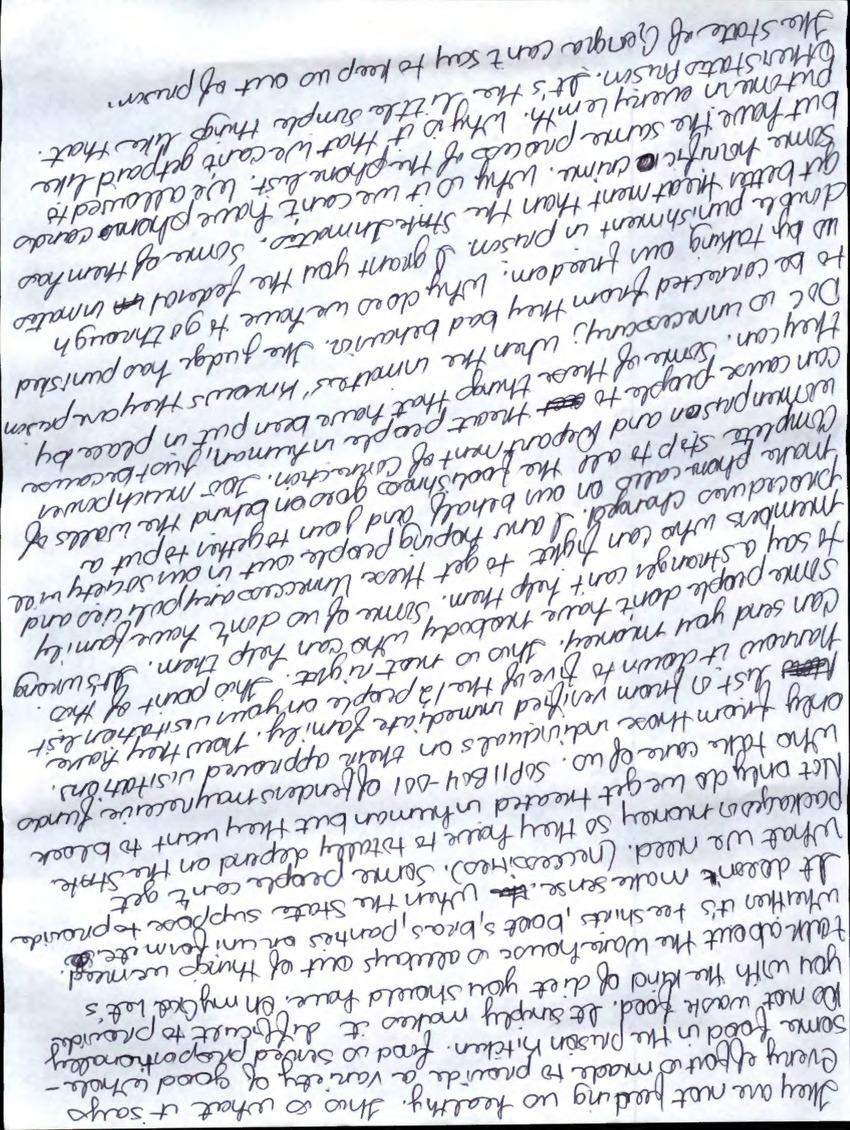 They are not feeding us healthy. This is what it says
every effort is made to provide a variety of good whole-
some food in the prison kitchen. Food is served proportionally
Do not wask food. It simply makes it difficult to provide
you with the kind of diet you should have. Oh my God let's
talk about the warehouse is always out of things we need.
whether it's tee shirts, boots, bras, panties or uniform etc.
It doesn't make sense. When the State suppose to provide
what we need. (neccessires). Some people can't get
packages or money so they have to totally depend on the State
Not only do we get treated inhuman but they want to block
who take care of us. SOP IIB04-001 offenders may receive funds
only from those individuals on their approved visitations.
list is from verified immediate family. Now they have
narrow it down to five of the 12 people on your visitation list
can send you money. This is not right. This point of this
some people don't have nobody who can help them. It's wrong
to say a stranger can't help them. Some of us don't have family
members who can fight to get these unneccessary policies and
procedures changed. I am hoping people out in our society will
make phone calls on our behalf and join together to put a
complete stop to all the foolishness goes on behind the walls of
women prison and Department of Correction. Too much power
can cause people to treat people inhuman, just because
they can. Some of these things that have been put in place by
DOC is unneccessary, when the inmates' knows they are prison
to be corrected from they bad behavior. The judge has punished
us by taking our freedom. Why does we have to go through
double punishment in prison. I grant you the federal inmates
get better treatment than the State Inmates. Some of them has
some horrific crime. Why is it we can't have phone cards
but have the same process of the phone list. We allowed to
put one in every 6 mth. Why is it that we can't get paid like
other States Prison. It's the little simple things like that.
The State of Georgia can't say to keep us out of prison.